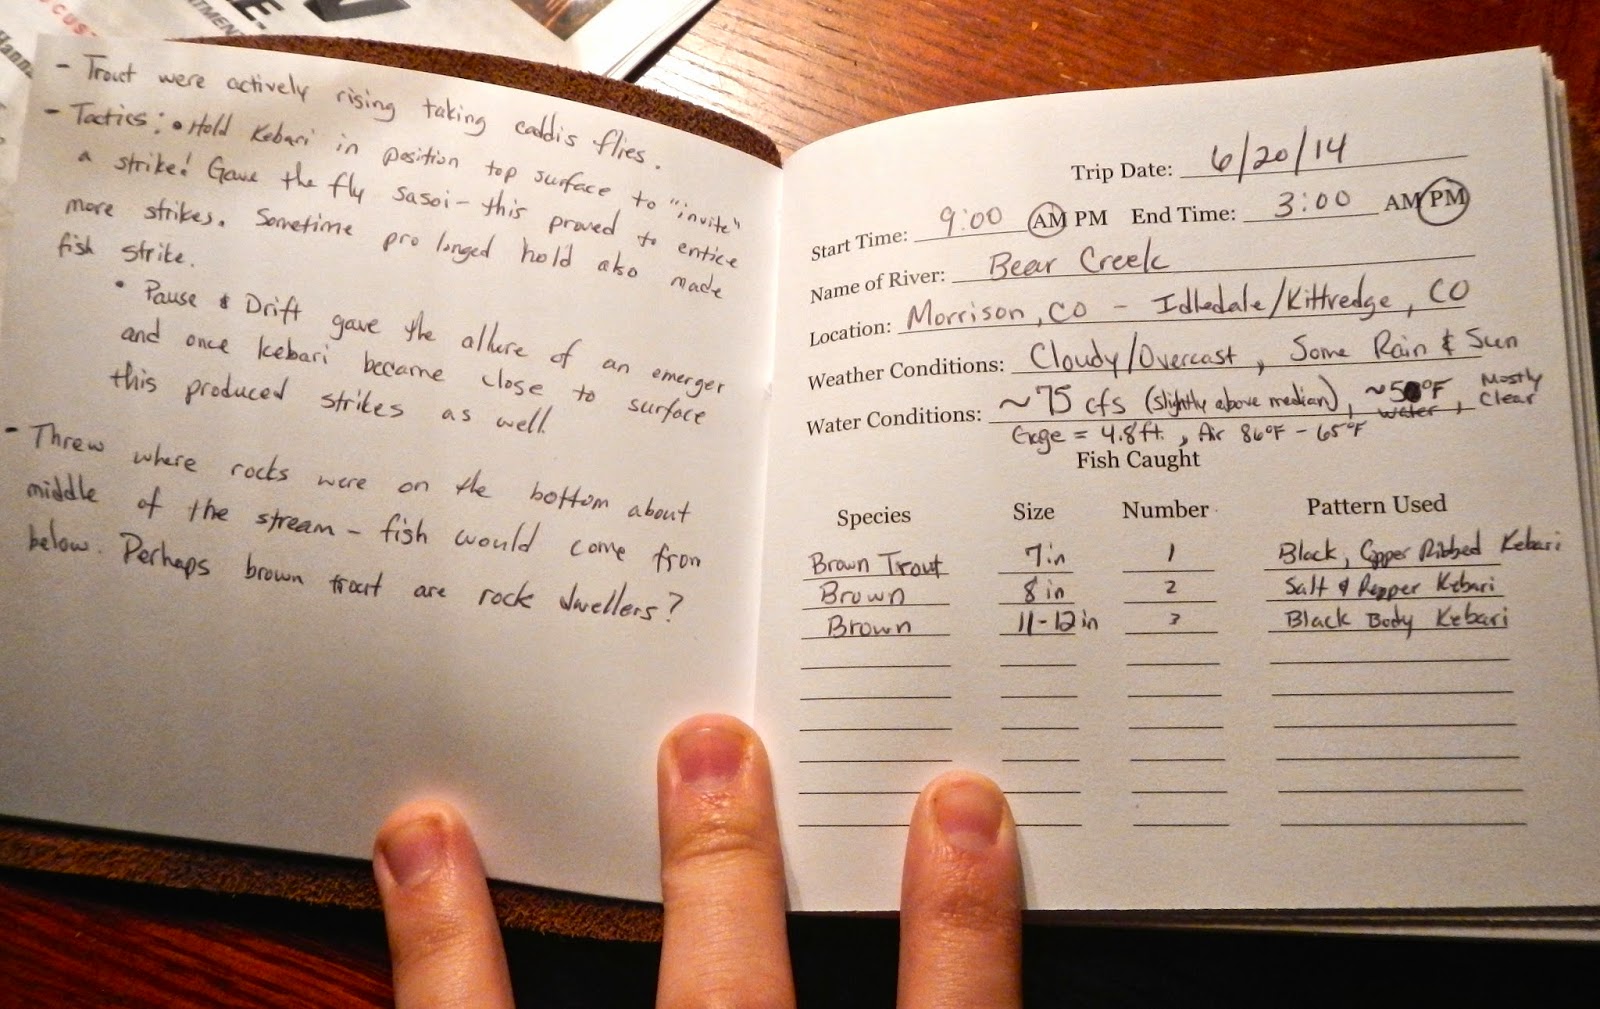 FOCUS
- Trout were actively rising taking caddis flies.
- Tactics: • Hold Kebari in position top surface to "invite"
a strike! Gave the fly sasoi - this proved to entice
more strikes. Sometime prolonged hold also made
fish strike.
• Pause & Drift gave the allure of an emerger
and once kebari became close to surface
this produced strikes as well.
- Threw where rocks were on the bottom about
middle of the stream - fish would come from
below. Perhaps brown trout are rock dwellers?
Trip Date: 6/20/14
Start Time: 9:00 AM PM End Time: 3:00 AM PM
Name of River: Bear Creek
Location: Morrison, CO - Idledale/Kittredge, CO
Weather Conditions: Cloudy/Overcast, Some Rain & Sun
Water Conditions: ~75 cfs (slightly above median), ~50°F water, Mostly Clear
Gage = 4.8 ft., Air 86°F - 65°F
Fish Caught
Species Size Number Pattern Used
Brown Trout 7 in 1 Black, Copper Ribbed Kebari
Brown 8 in 2 Salt & Pepper Kebari
Brown 11-12 in 3 Black Body Kebari